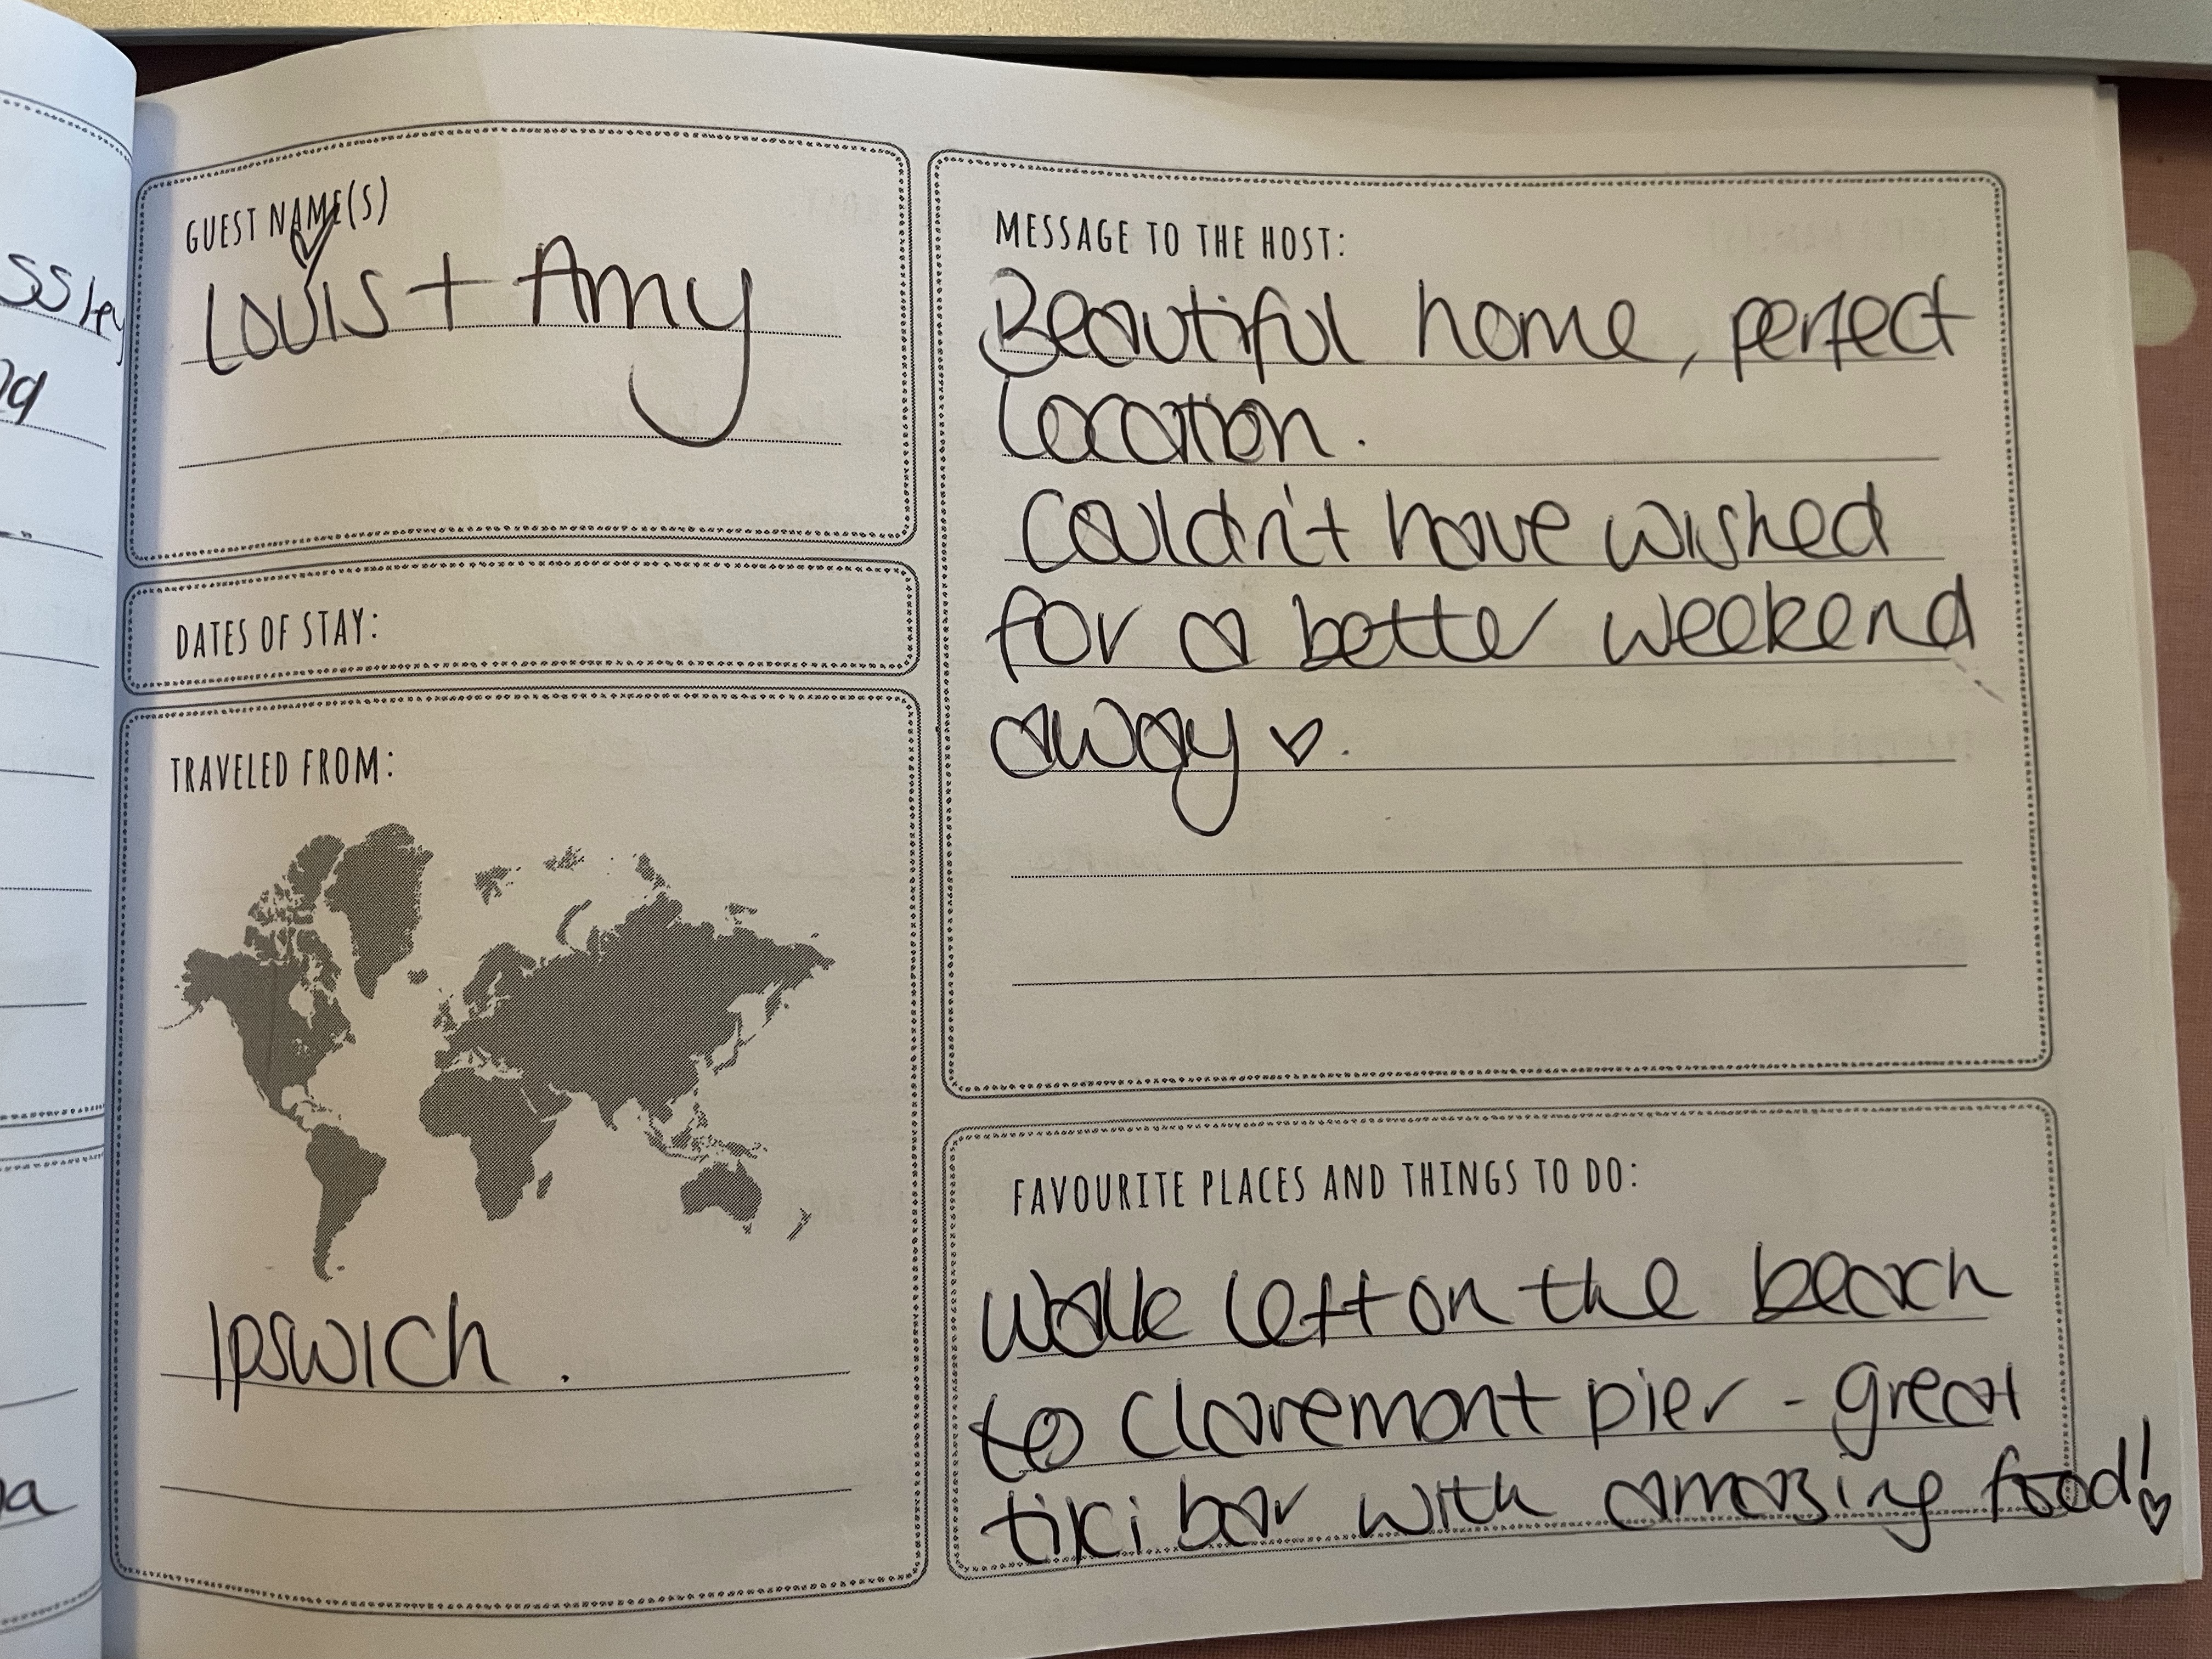 GUEST NAME(S)
Louis + Amy
DATES OF STAY:
TRAVELED FROM:
Ipswich .
MESSAGE TO THE HOST:
Beautiful home, perfect
Location.
Couldn't have wished
for a better weekend
away ♡.
FAVOURITE PLACES AND THINGS TO DO:
Walk left on the beach
to claremont pier - great
tiki bar with amazing food!♡